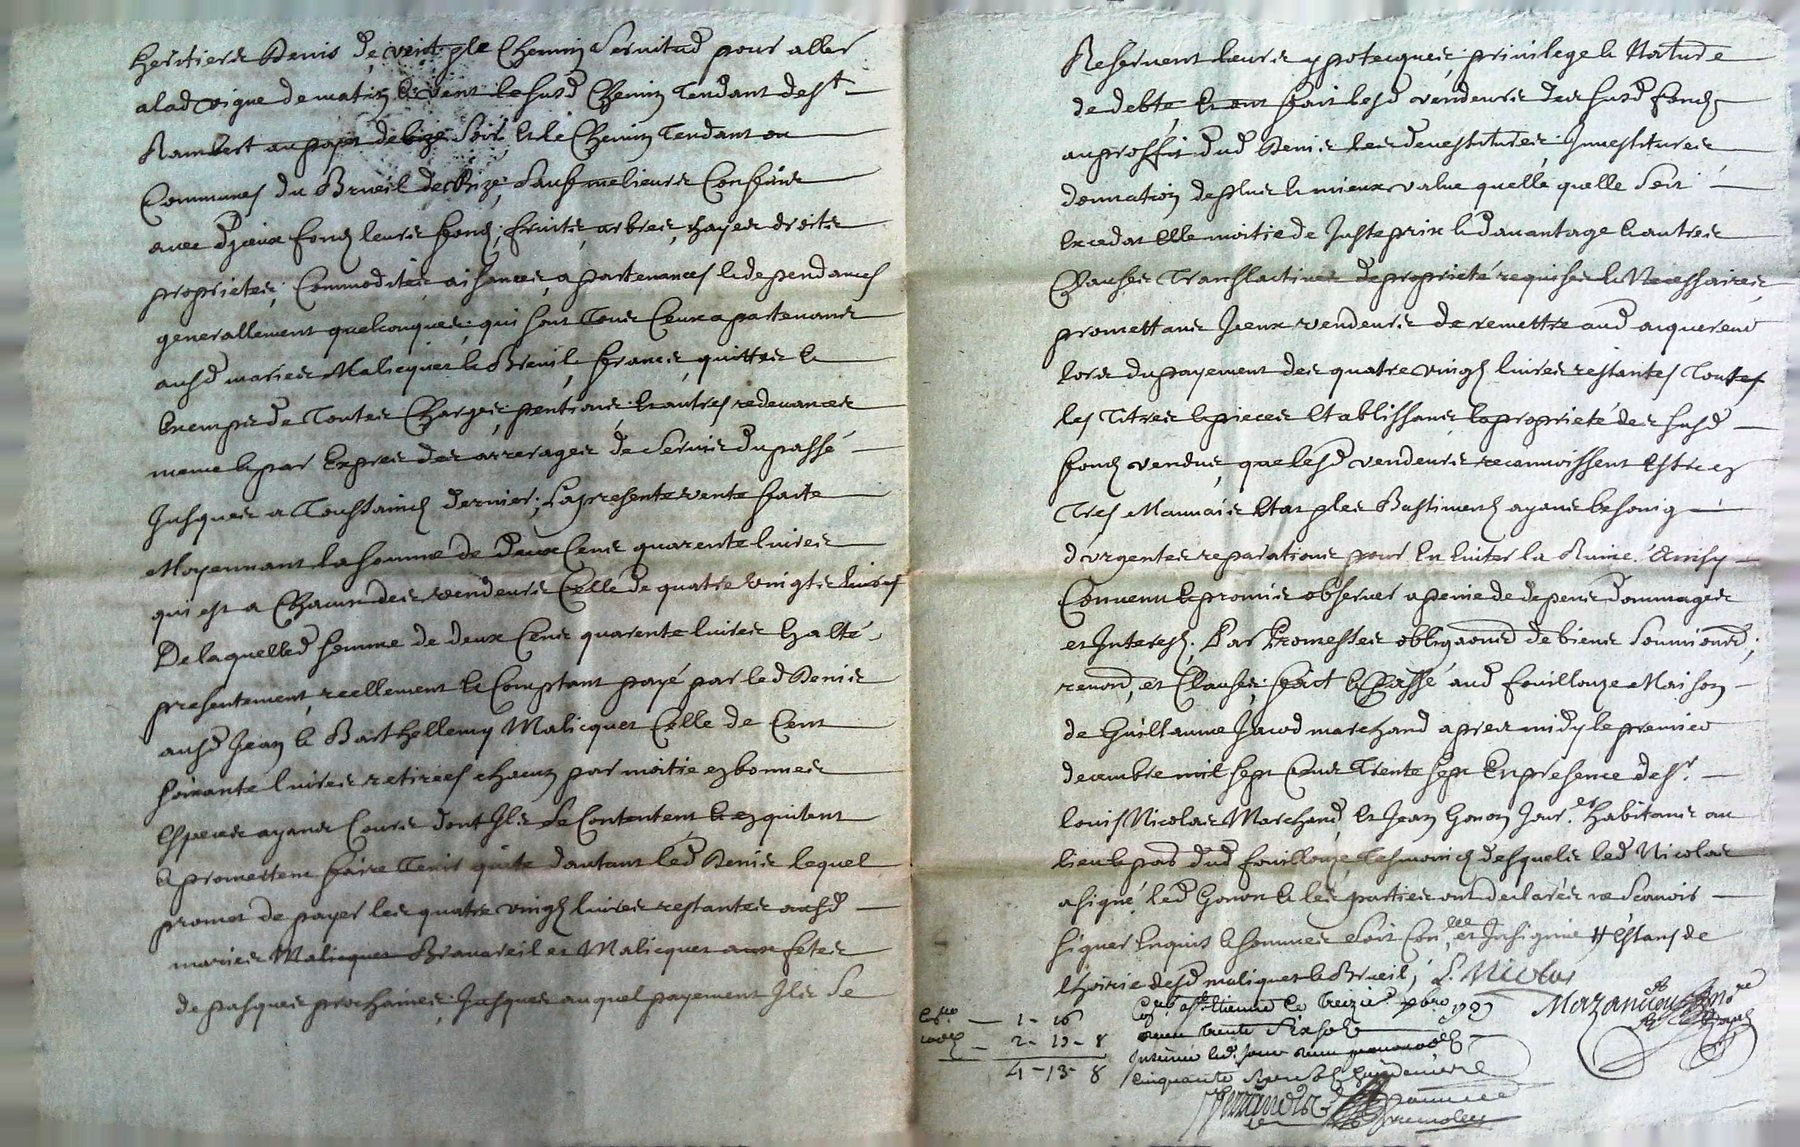 heritiers Denis de vent ple Chemin Servitud pour aller
alad vigne de matin et vent le susd Chemin Tendant de St
Rambert au pajat de bize soir et le Chemin Tendant au
Communes du Brueil de Bize, sauf melieurs Confins
avec d'jceux fondz leurs fondz, fruits, arbres, hayes droits
proprietes, Commodites, aisances, apartenances et dependances
generallement quelconques; qui sont Tous Ceux apartenants
ausd maries Malicquet et Breuil, francs, quittes et
Exempts de Toutes Charges, pentions et autres redevances
meme et par Exprès des arrerages de Servis du passé
Jusques a Toussainctz dernier; La presente vente faite
Moyennant la somme de deux Cens quarente livres
qui est a Chacun des vendeurs Celle de quatre vingts livres
De laquelled somme de deux Cens quarente livres Ha eté
presentement, reellement et Comptant payé par led Denis
ausd Jean et Barthellemy Malicquet Celle de Cent
soixante livres retirées chacun par moitié en bonnes
Espèces ayants Cours dont Ils se Contentent et en quitent
et promettent faire Tenir quite d'autant led Denis lequel
promet de payer les quatre vingtz livres restantes ausd
maries Malicquet Braveil et Malicquet aux fetes
de pasques prochaines, Jusques auquel payement Ils se
Reservent leurs ypotecques, privilege et Nature
de debte, Et ont fait lesd vendeurs des susd fondz
au proffit dud Denis les devestitures, Investitures
donnation de plus et mieux value quelle quelle soit
Excedat Elle moitié de Juste prix et davantage et autres
Clauses Translactives de proprieté requises et Necessaires
promettans Iceux vendeurs de remettre aud acquereur
lors du payement des quatre vingtz livres restantes Toutes
les Titres et pieces Etablissans la proprieté des susd
fondz vendus, que lesd vendeurs reconnoissent Estre en
Tres Mauvais Etat et les Bastimentz ayans besoing
d'urgentes reparations pour En Eviter la Ruine. Ainsy
Convenu et promis observer a peine de depens dommages
et Interestz; Par Promesses obligaond de biens soumiond;
renond, et Clauses; fait et Passé aud fouillouze Maison
de Guillaume Jacod marchand apres midy le premier
decembre mil sept Cens Trente sept En presence de Sr
Louis Nicolas Marchand, et Jean Gonon Jour.er habitans au
lieu et par dud fouillouze, Tesmoincz desquels led Nicolas
a signé, led Gonon et les parties ont declarés ne scavoir
signer Enquis et sommés soit Con.lee et Insignué # Estans de
L'hoirie desd maliquet et Brueil; L. Nicolas
Mazandieu No.re
Con.lle 1 - 16
2 - 17 - 8
4 - 13 - 8
Con.lé a St Etienne le treize xbre 1737
Recu trente six sols
Insinué led. jour Recu
cinquante sept sols huit deniers